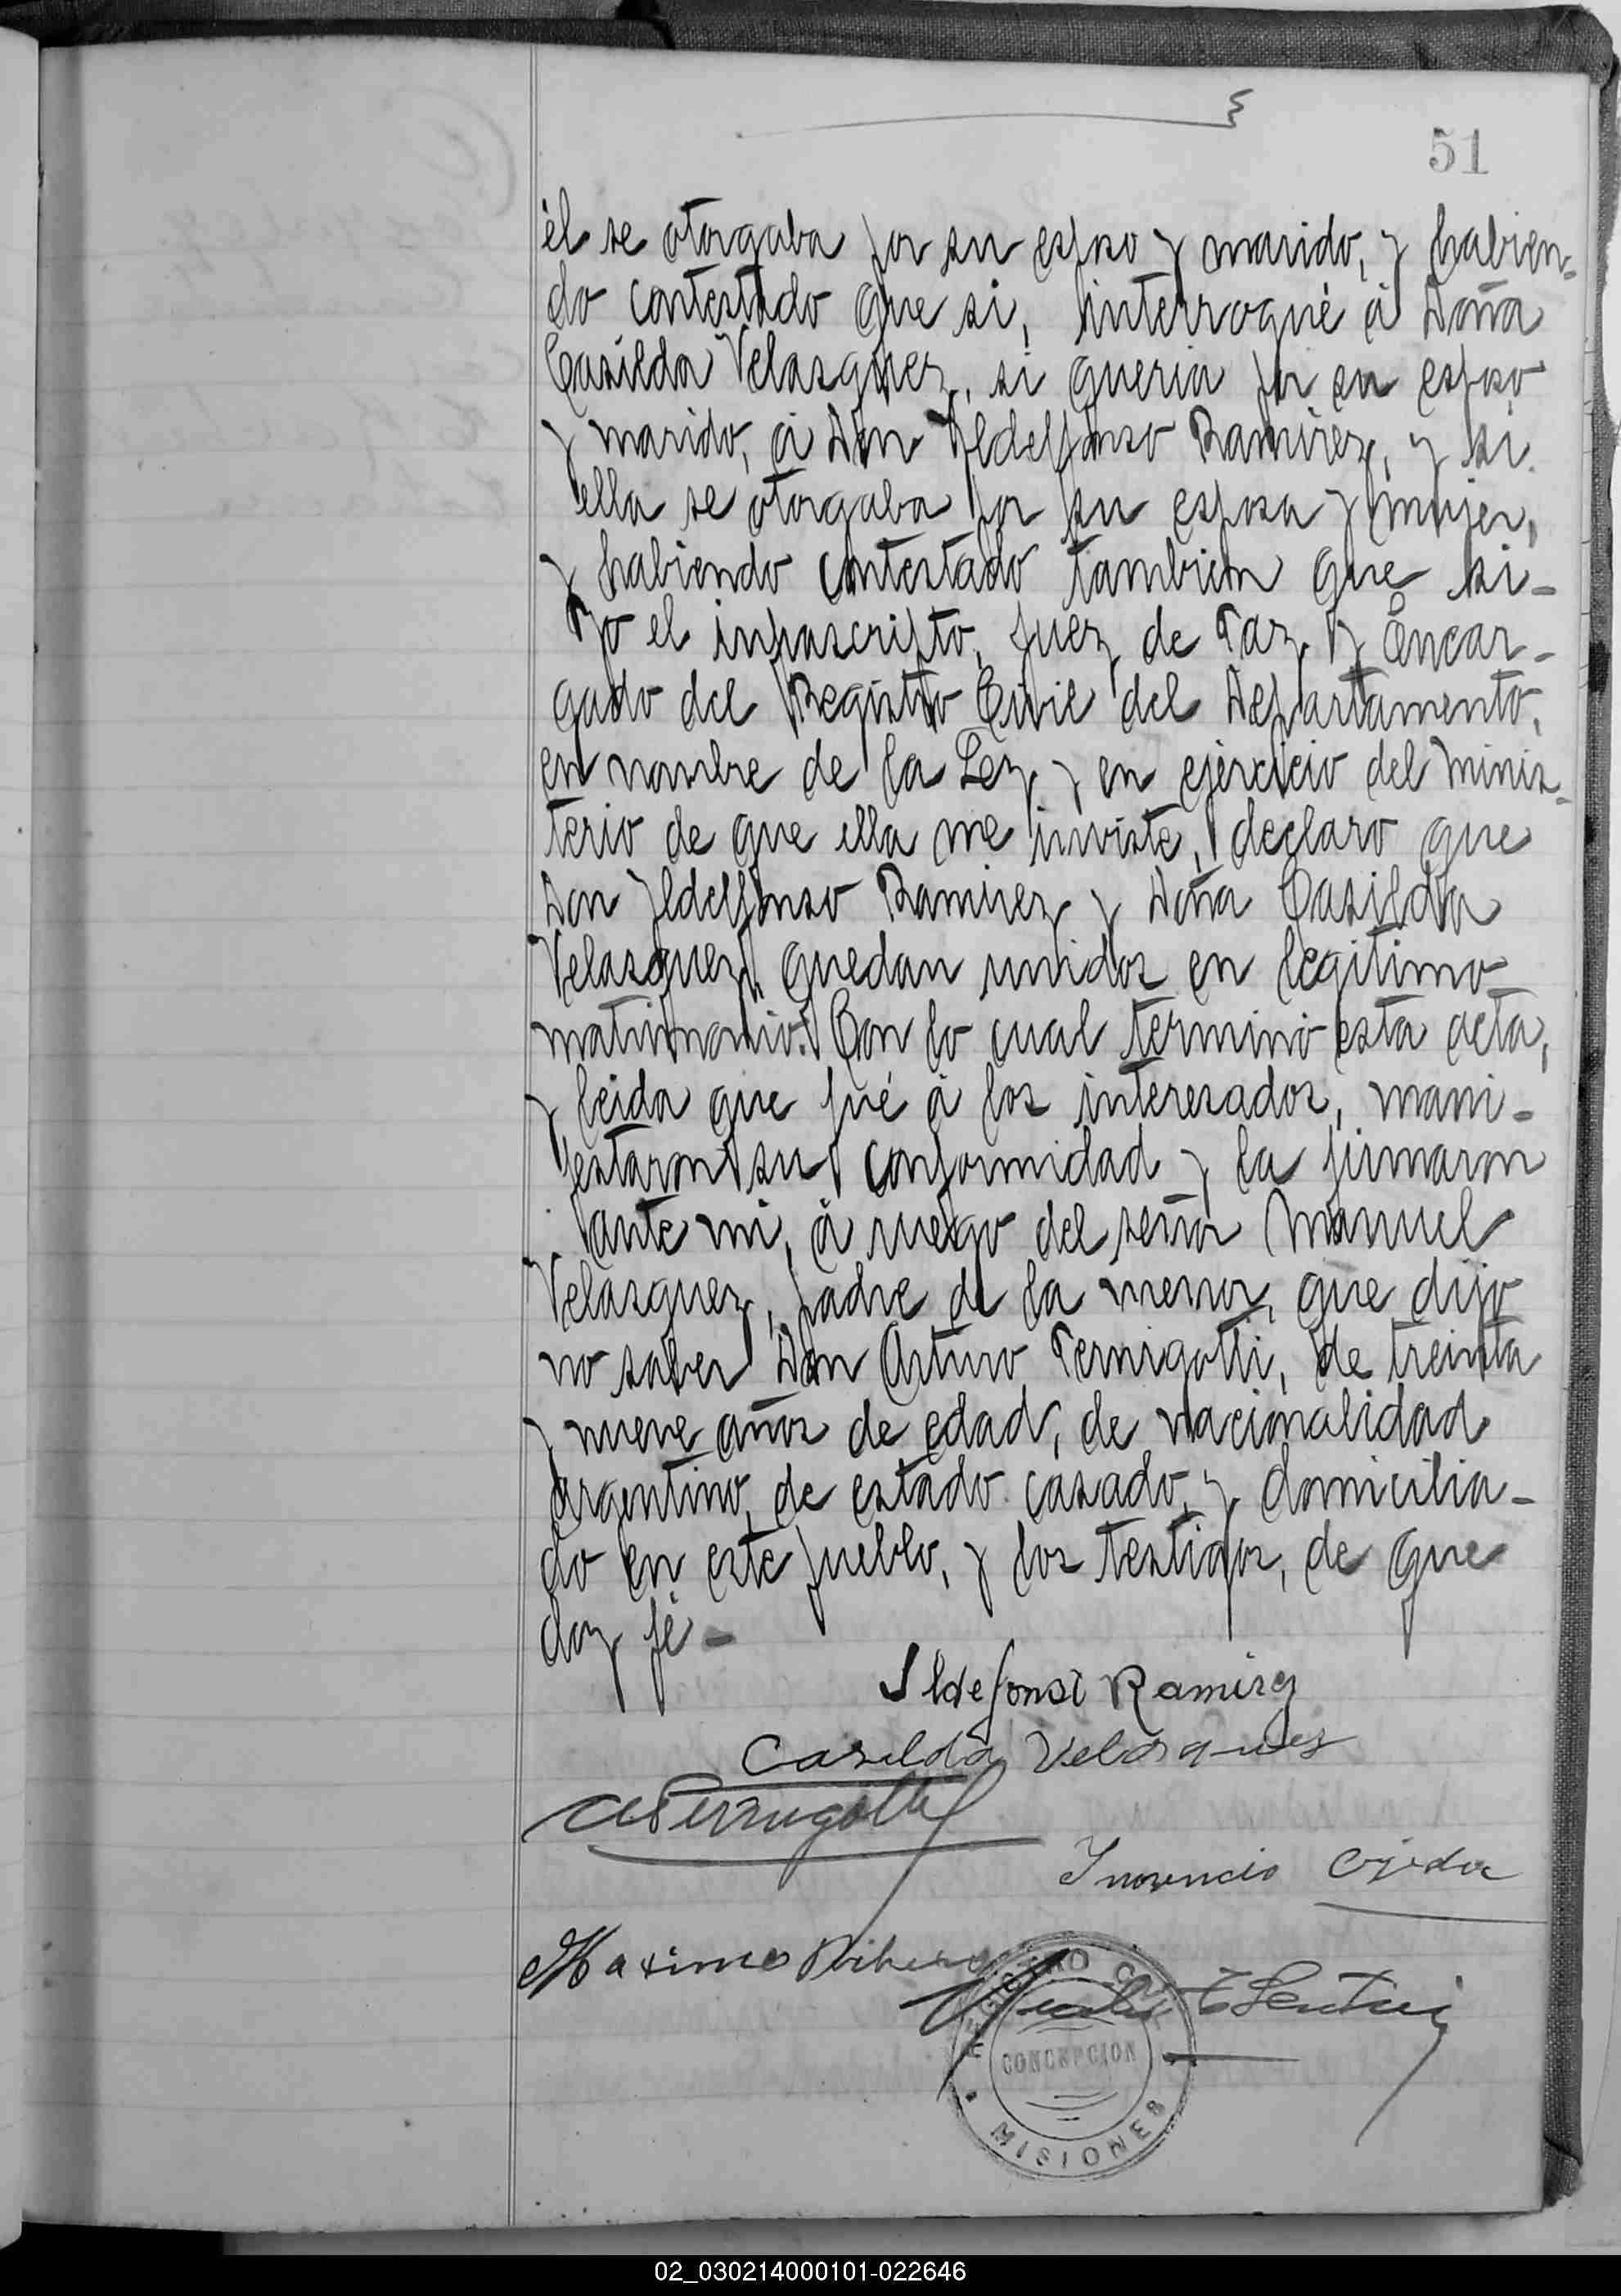 51
él se otorgaba por su esposo y marido, y habien-
do contestado que si, interrogué á Doña
Casilda Velasquez, si queria por su esposo
y marido, á Don Ildelfonso Ramirez, y si
ella se otorgaba por su esposa y mujer,
y habiendo contestado tambien que si-
Yo el infrascripto, Juez de Paz y Encar-
gado del Registro Civil del Departamento,
en nombre de la Ley y en ejercicio del minis-
terio de que ella me inviste, declaro que
Don Ildelfonso Ramirez y Doña Casilda
Velasquez, quedan unidos en legitimo
matrimonio. Con lo cual terminó esta acta,
y leida que fué á los interesados, mani-
festaron su conformidad y la firmaron
ante mi, á ruego del señor Manuel
Velasquez, padre de la menor, que dijo
no saber Don Arturo Pernigotti, de treinta
y nueve años de edad, de nacionalidad
argentino, de estado casado, y domicilia-
do en este pueblo, y los testigos, de que
doy fé-
Ildefonso Ramirez
Casilda Velasquez
A Pernigotti
Inosencio Ojeda
Maximo Ribero
REGISTRO CIVIL
CONCEPCION
MISIONES
02_030214000101-022646